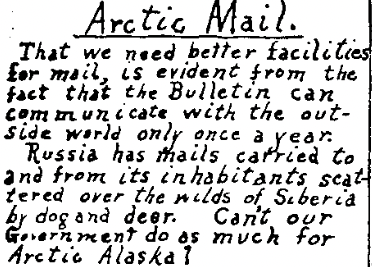 Arctic Mail.
That we need better facilities
for mail, is evident from the
fact that the Bulletin can
communicate with the out-
side world only once a year.
Russia has mails carried to
and from its inhabitants scat-
tered over the wilds of Siberia
by dog and deer. Can't our
Government do as much for
Arctic Alaska?